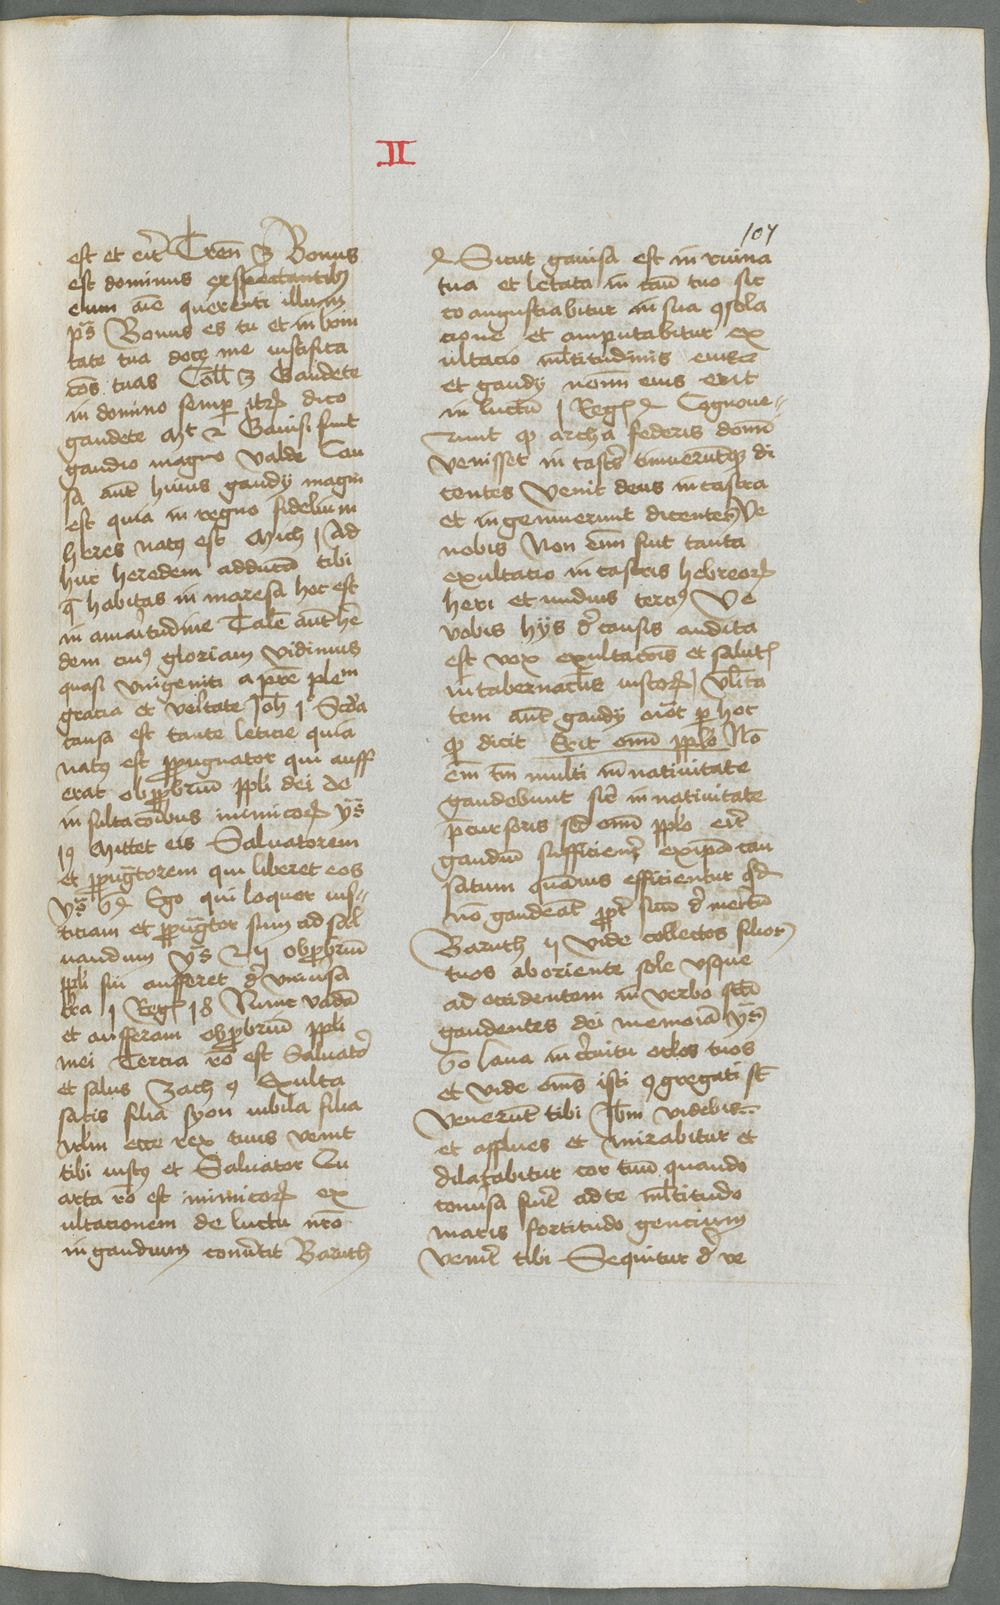 II
107
est et erit Tren 3 Bonus
est dominus exspectantibꝯ
eum aīe querenti illum
ps̄ Bonus es tu et in boni
tate tua doce me iustifica
cōs tuas Coll 3 Gaudete
in domino semper itꝝ dico
gaudete Mt 2 Gauisi sunt
gaudio magno valde Cau
sa aūt huius gaudij magni
est quia in regno fidelium
heres natꝯ est Mich 1 Ad
huc heredem adducā tibi
q̄ habitas in maresa hoc est
in amaritudine Talē aūt he
dem cuiꝯ gloriam vidimus
quasi vnigeniti a pr̄e plem
gracia et veritate Joh 1 Scd̄a
causa est tante leticie quia
natꝯ est ꝓpugnator qui auff
erat obꝓbriū ppli dei de
insultac̄oibus inimicoꝝ ys̄
19 Mittet eis Saluatorem
et ꝓpugtorem qui liberet eos
ys̄ 63 Ego qui loquor ius-
ticiam et ꝓpugtor sum ad sal
uandum ys̄ 25 obꝓbriū
ppli sui aufferet d' vniuersa
t'ra 1 Reg 18 Nunc vadā
et aufferam obꝓbriū ppli
mei Tercia rō est Saluator
et salus Zach 9 Exulta
satis filia syon iubila filia
irlm ecce rex tuus venit
tibi iustꝯ et Saluator Qu
arta rō est inimicoꝝ ex
ultacionem de luctu nr̄o
in gaudium conūtit Baruch
4 Sicut gauisa est in ruina
tua et letata in casu tuo sic
coangustiabitur in sua ꝯsola
cione et amputabitur ex
ultacio mltitudinis eius
et gaudiū eius erit
in luctū 1 Reg 4 Cognoue-
runt qꝫ archa federis domī
venisset in castꝭ timueruntqꝫ di
centes Venit deus in castra
et ingemuerunt dicentes Ve
nobis Non enī fuit tanta
exultacio in castris hebreoꝝ
heri et nudius terciꝯ Ve
vobis hijs d' causis audita
est vox exultac̄ois et salutꝭ
in tabernaclis iustoꝝ Vlita
tem aūt gaudij on̄dit per hoc
qꝫ dicit Erit omī pplo Nō
em̄ tm̄ multi in natiuitate
gaudebunt sic̄ in natiuitate
p̄cursoris sed omī pplo erit
gaudiū sufficienꝰ ex ipa cau
satum quāuis efficientur qd
nō gaudeāt ꝓpt' suū d'meritū
Baruch 5 vide collectos filios
tuos ab oriente sole vsque
ad occidentem in verbo scī
gaudentes dei memoriā ys̄
60 leua in c'cuitu oclos tuos
et vide oms isti ꝯgregati st̄
venerūt tibi Ibm videbis
et afflues et mirabitur et
dilatabitur cor tuū quando
conūsa fuīt ad te mltitudo
maris fortitudo gencium
venīt tibi Sequitur d' ve